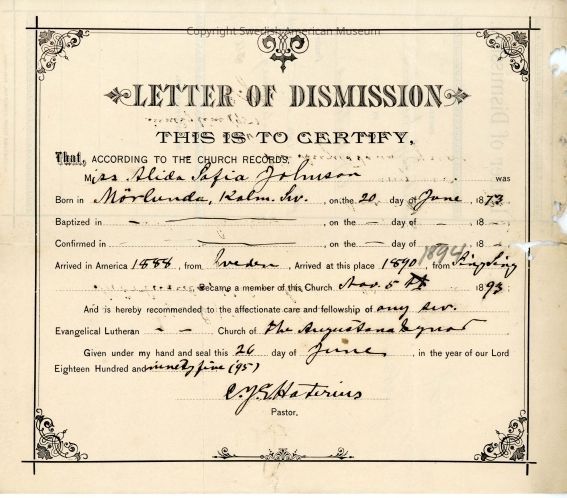 Copyright Swedish American Museum
LETTER OF DISMISSION
THIS IS TO CERTIFY,
That, ACCORDING TO THE CHURCH RECORDS,
Miss Alida Sofia Johnson was
Born in Mörlunda, Kalm. Sw., on the 20 day of June, 1873
Baptized in —, on the — day of —, 18—
Confirmed in —, on the — day of —, 18—
1894
Arrived in America 1888, from Sweden, Arrived at this place 1890, from Sing Sing
Became a member of this Church Nov. 5 1893,
And is hereby recommended to the affectionate care and fellowship of any sw.
Evangelical Lutheran — — Church of the Augustana Synod
Given under my hand and seal this 26 day of June, in the year of our Lord
Eighteen Hundred and ninety five (95)
Pastor.